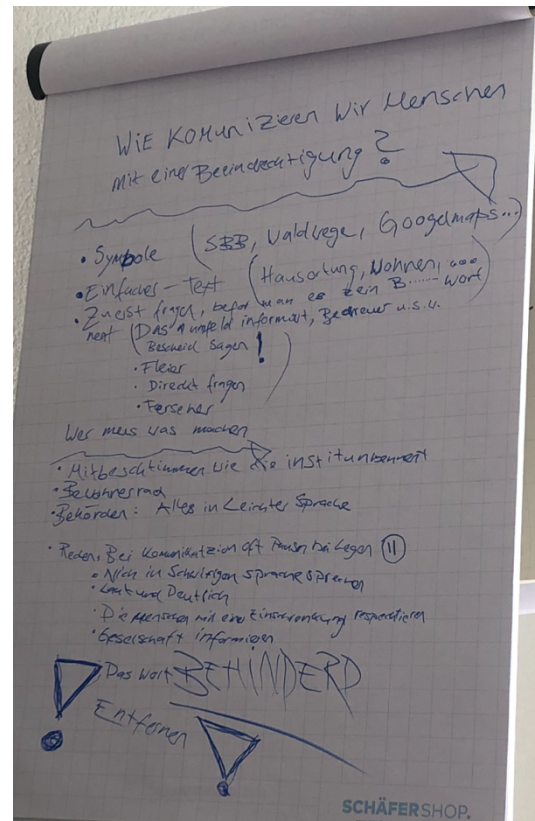 WiE KOMuniZieren Wir Menschen
mit einer Beeindrechtigung?
• Symbole (SBB, Waldwege, Googelmaps...)
• Einfacher-Text (Hausortung, Wohnen, ...)
• Zuerst fragen, befor man es zein B...... Wort
nent (DAS umfeld informirt, Bedreuer u.s.w.
Bescheid sagen!
• Fleier
• Direckt fragen
• Ferseher
Wer mus was machen
• Mitbeschtimmen wie die
• Bewohnesrad
• Behörden: Alles in Leichter Sprache
• Reden, Bei Komunikatzion oft Pausen bei Legen
• Nich in Schwirigen Sprache sprechen
• Laut und Deutlich
• Die Menschen mit einer Einschrenkung respectieren
• Geselschaft informieren
Das Wort BEHINDERD
Entfernen
SCHÄFER SHOP.